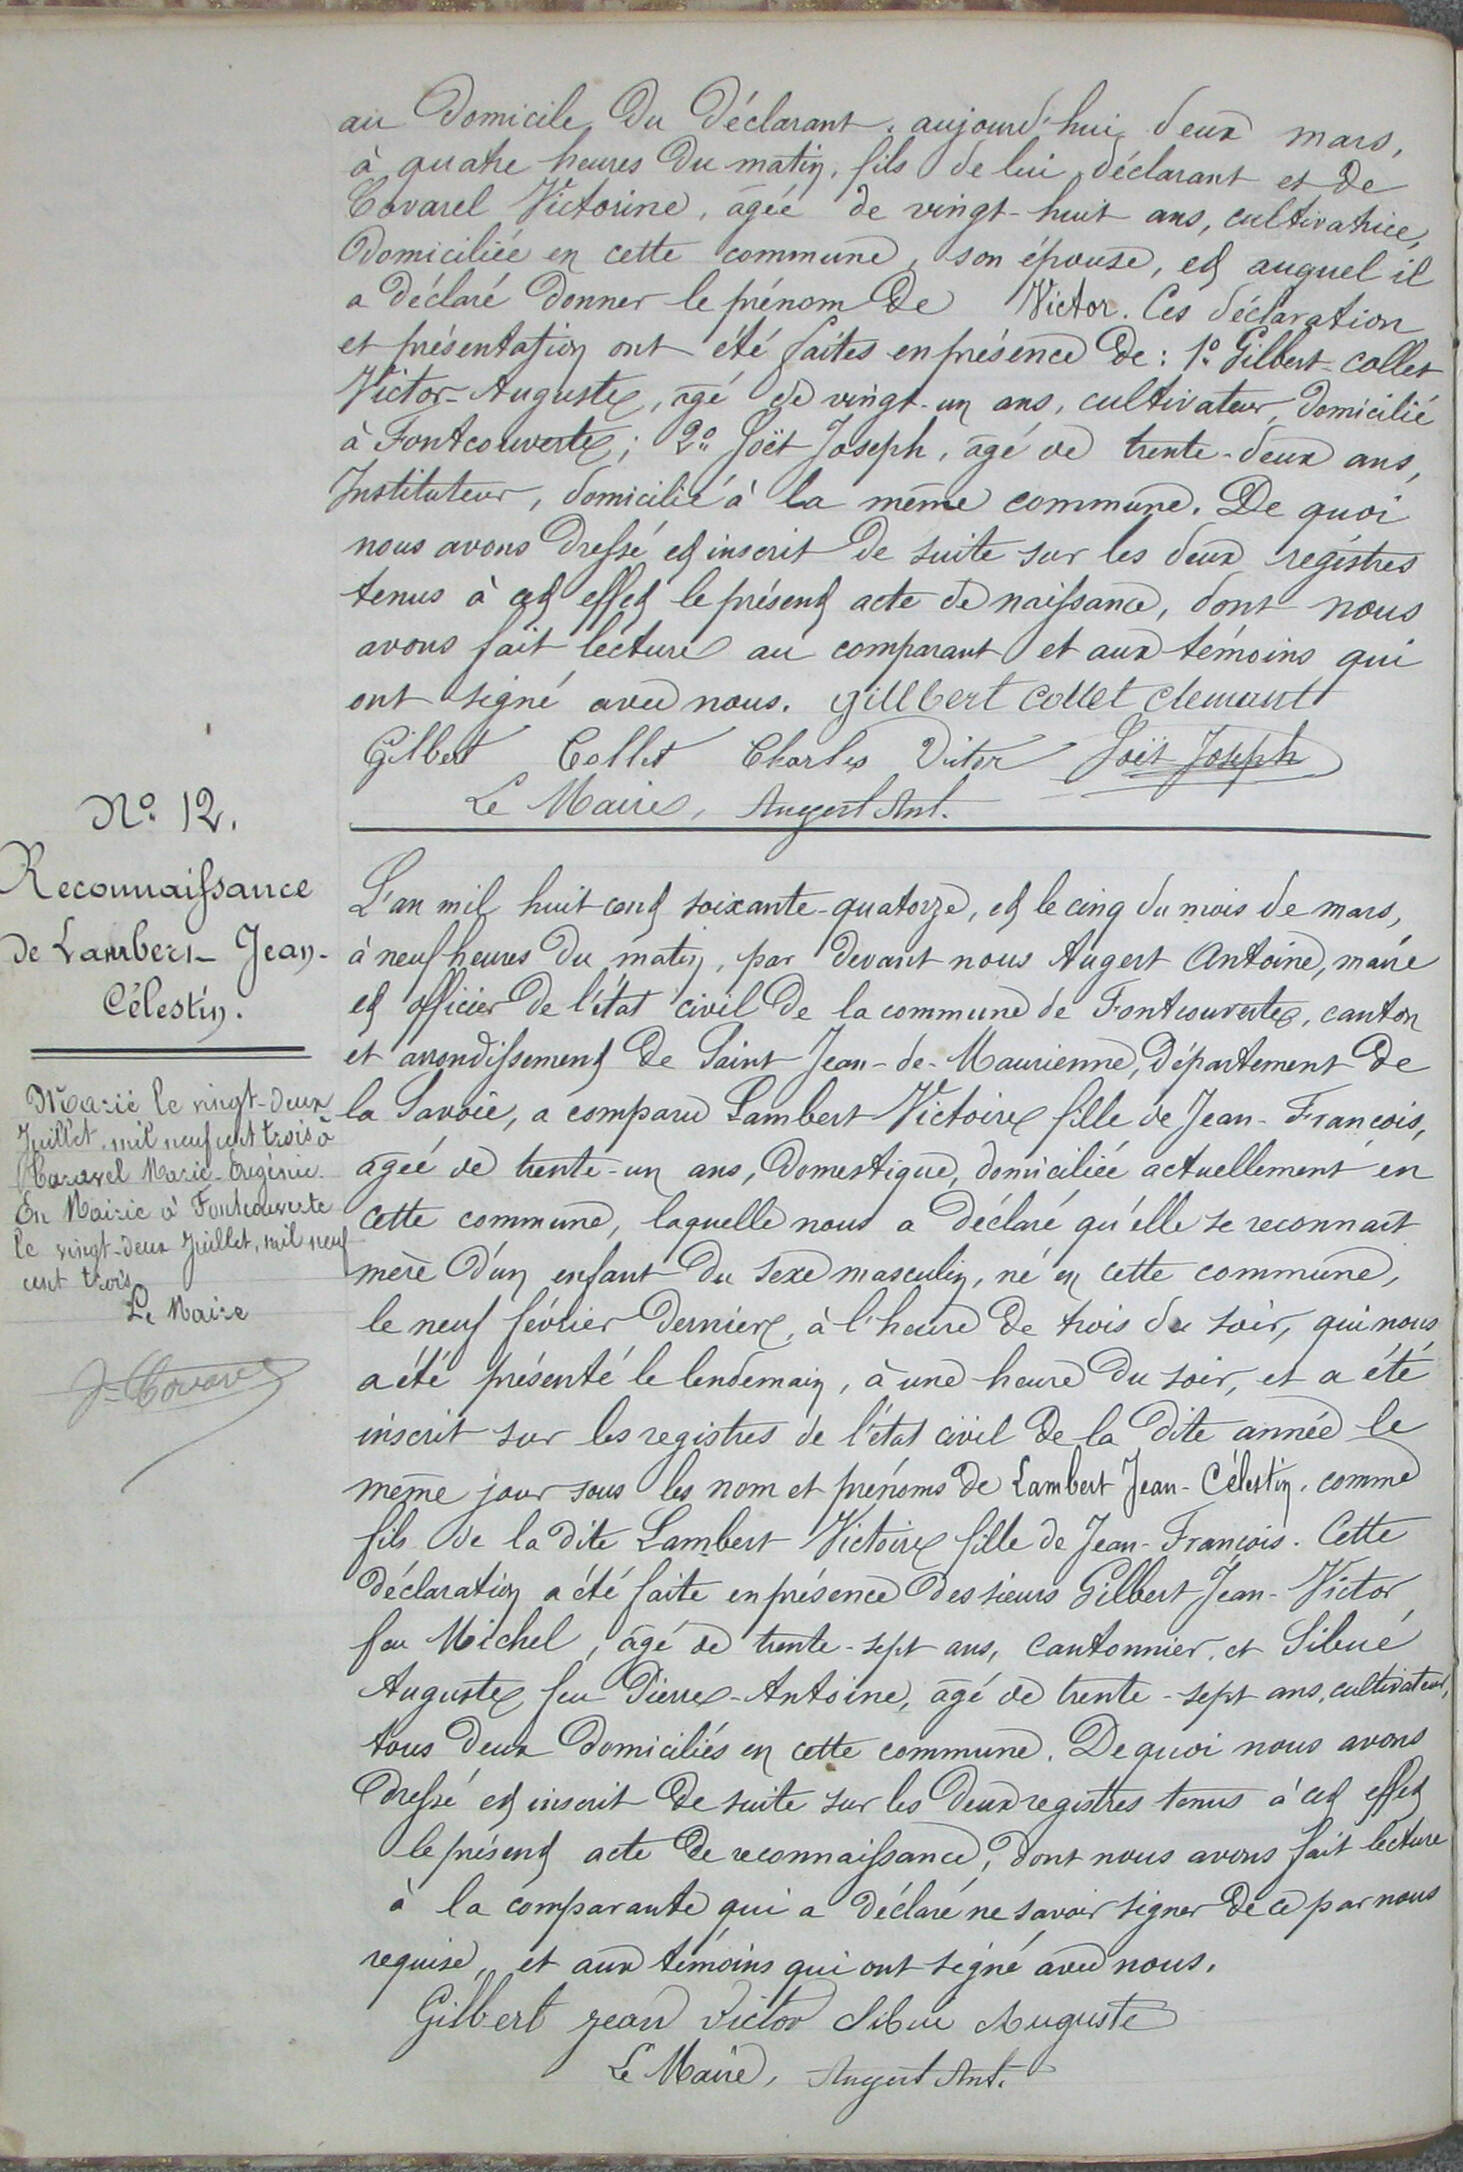 au domicile du déclarant, aujourd'hui deux mars,
à quatre heures du matin, fils de lui déclarant et de
Covarel Victorine, âgée de vingt-huit ans, cultivatrice,
domiciliée en cette commune, son épouse, et auquel il
a déclaré donner le prénom de Victor. Ces déclaration
et présentation ont été faites en présence de : 1º Gilbert-Collet
Victor-Auguste, âgé de vingt-un ans, cultivateur, domicilié
à Fontcouverte ; 2º Joët Joseph, âgé de trente-deux ans,
Instituteur, domicilié à la même commune. De quoi
nous avons dressé et inscrit de suite sur les deux registres
tenus à cet effet le présent acte de naissance, dont nous
avons fait lecture au comparant et aux témoins qui
ont signé avec nous. Gillbert Collet Clemant
Gilbert Collet Charles Victor Joët Joseph
Le Maire, Augert Ant.
Nº 12.
Reconnaissance
de Lambert Jean-
Célestin.
Marié le vingt-deux
Juillet, mil neuf cent trois à
Marie-Eugénie.
En Mairie à Fontcouverte
le vingt-deux Juillet, mil neuf
cent trois
Le Maire
J. Covarel
L'an mil huit cent soixante-quatorze, et le cinq du mois de mars,
à neuf heures du matin, par devant nous Augert Antoine, maire
et officier de l'état civil de la commune de Fontcouverte, canton
et arrondissement de Saint Jean-de-Maurienne, département de
la Savoie, a comparu Lambert Victoire fille de Jean-François,
âgée de trente-un ans, domestique, domiciliée actuellement en
cette commune, laquelle nous a déclaré qu'elle se reconnait
mère d'un enfant du sexe masculin, né en cette commune,
le neuf février dernier, à l'heure de trois du soir, qui nous
a été présenté le lendemain, à une heure du soir, et a été
inscrit sur les registres de l'état civil de la dite année le
même jour sous les nom et prénoms de Lambert Jean-Célestin, comme
fils de la dite Lambert Victoire fille de Jean-François. Cette
déclaration a été faite en présence des sieurs Gilbert Jean-Victor
feu Michel, âgé de trente-sept ans, cantonnier, et Sibué
Auguste feu Pierre-Antoine, âgé de trente-sept ans, cultivateur,
tous deux domiciliés en cette commune. De quoi nous avons
dressé et inscrit de suite sur les deux registres tenus à cet effet
le présent acte de reconnaissance, dont nous avons fait lecture
à la comparante qui a déclaré ne savoir signer de ce par nous
requise, et aux témoins qui ont signé avec nous.
Gilbert jean victor Sibue Auguste
Le Maire, Augert Ant.